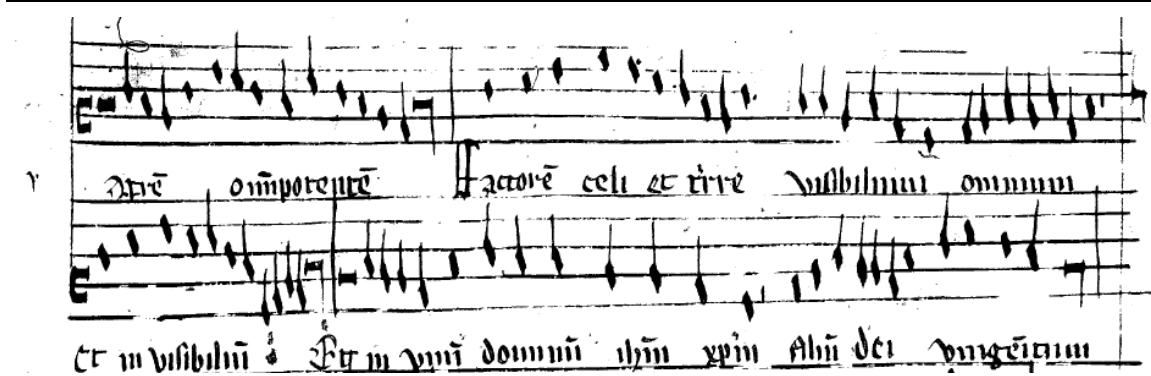 atrē om̄potentē Factorē celi et t'rre visibilium omnium
Et in visibiliū Et in vnū dominū ihm̄ xpm̄ filiū dei vnigenitum